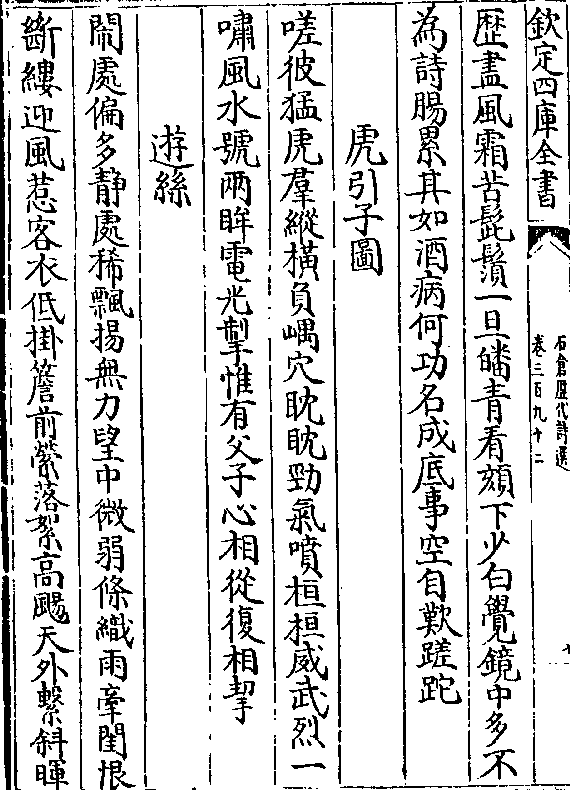 欽定四庫全書
石倉歴代詩選
卷三百九十二
歴盡風霜苦髭鬚一旦皤青看頦下少白覺鏡中多不
為詩腸累其如酒病何功名成底事空自歎蹉跎
虎引子圖
嗟彼猛虎羣縱横負嵎穴眈眈勁氣噴桓桓威武烈一
嘯風水號兩眸電光掣惟有父子心相從復相挈
遊絲
閙處偏多静處稀飄揚無力望中微弱條織雨牽閨恨
斷縷迎風惹客衣低掛簷前縈落絮高颺天外繫斜暉